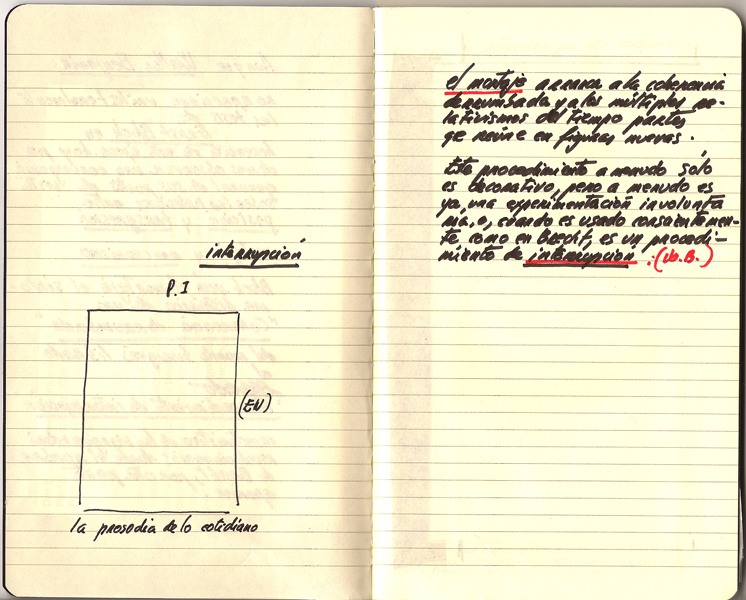 interrupción
P.I
(EN)
la prosodia de lo cotidiano
el montaje arranca a la coherencia
derrumbada y a los múltiples re-
lativismos del tiempo partes
qe reúne en figuras nuevas.
Este procedimiento a menudo sólo
es decorativo, pero a menudo es
ya, una experimentación involunta
ria, o, cuando es usado consientemen-
te como en Brecht, es un procedi-
miento de interrupcion. (W.B.)